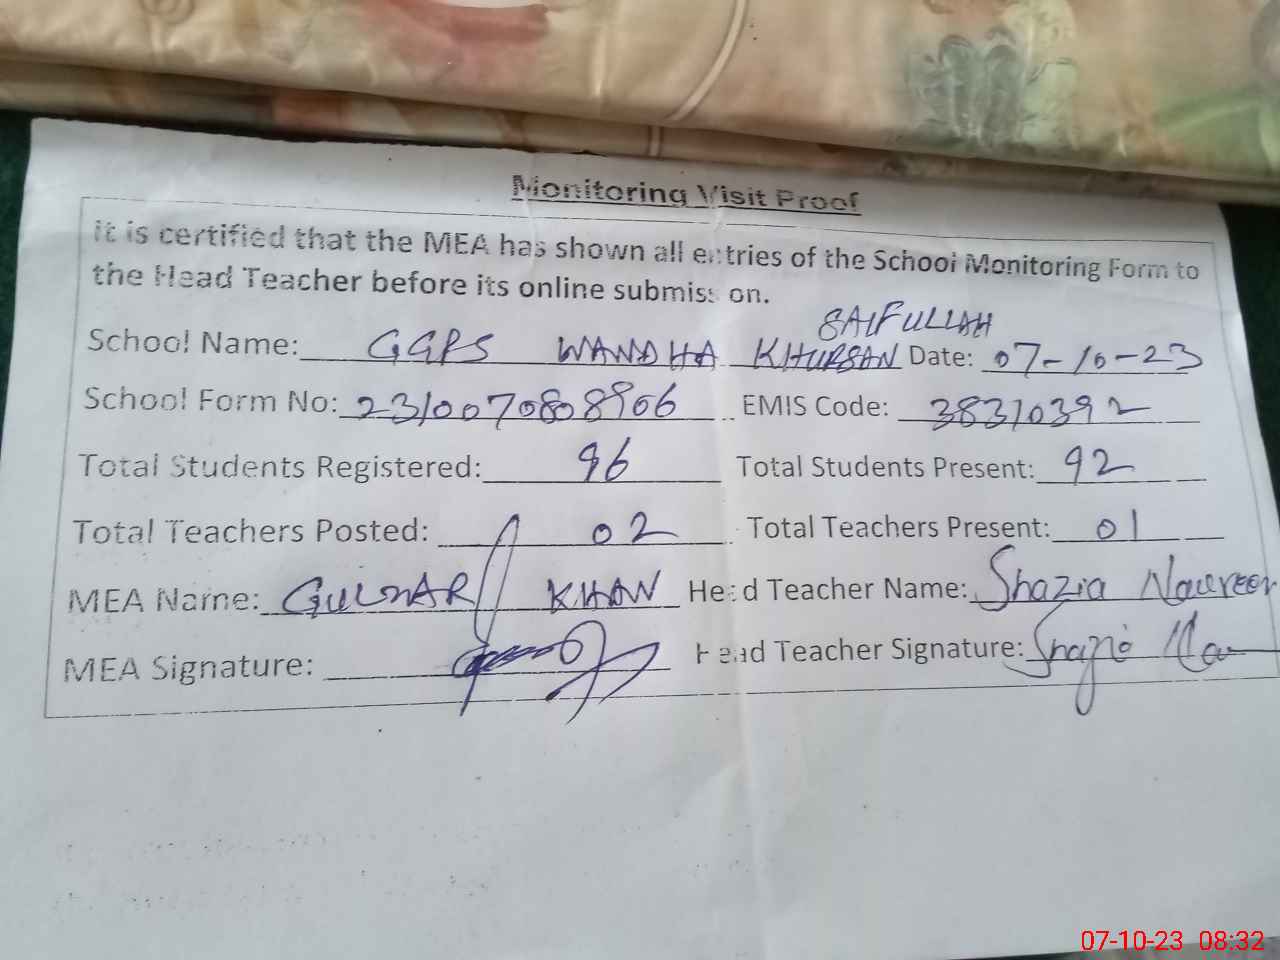 Monitoring Visit Proof
it is certified that the MEA has shown all entries of the School Monitoring Form to
the Head Teacher before its online submission.
SAIFULLAH
School Name: GGPS WANDHA KHURSAN Date: 07-10-23
School Form No: 2310070808906 EMIS Code: 38310392
Total Students Registered: 96 Total Students Present: 92
Total Teachers Posted: 02 Total Teachers Present: 01
MEA Name: GULNAR KHAN Head Teacher Name: Shazia Noureen
MEA Signature: Head Teacher Signature: Shazia
07-10-23 08:32